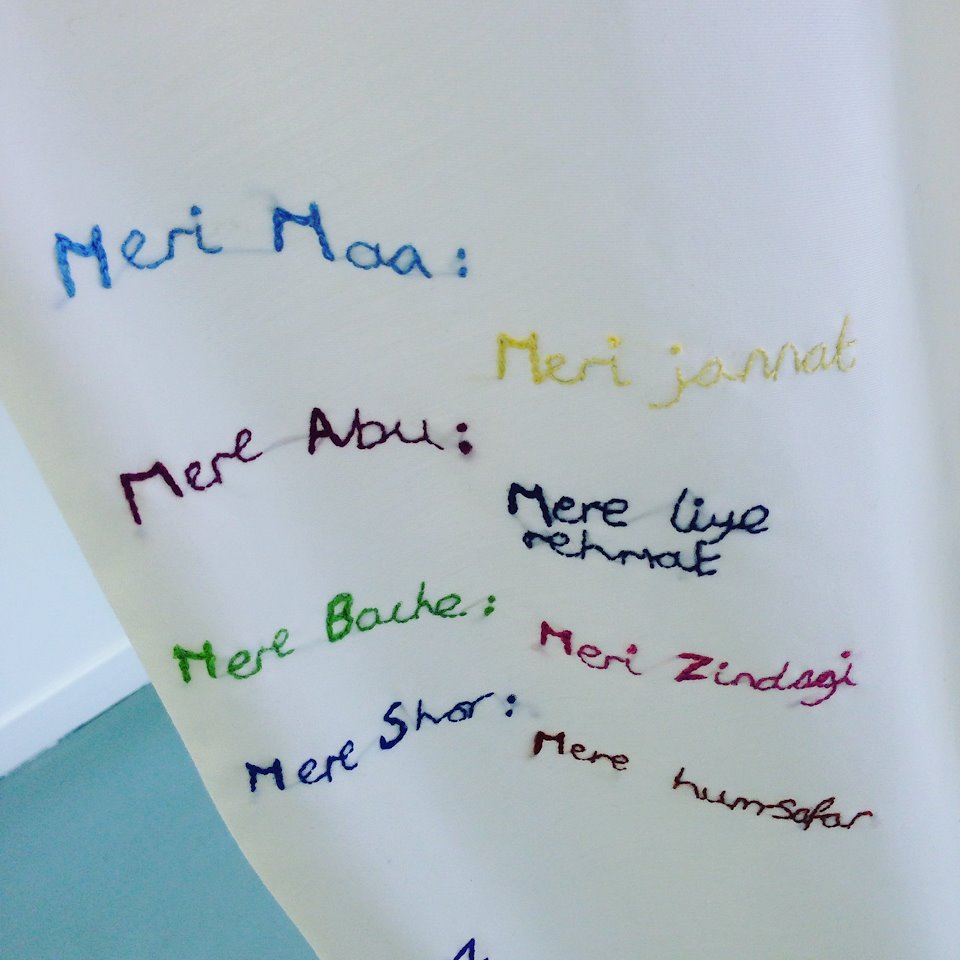 Meri Maa:
Meri jannat
Mere Abu:
Mere liye
rehmat
Mere Bache:
Meri Zindagi
Mere Shor:
Mere humsafar